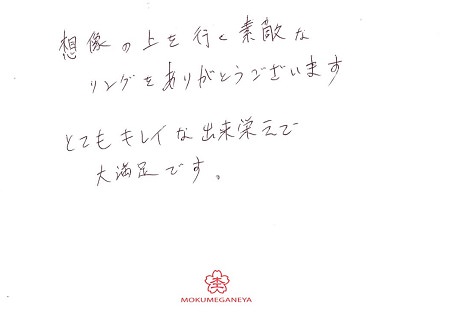 想像の上を行く素敵な
リングをありがとうございます
とてもキレイな出来栄えで
大満足です。
MOKUMEGANEYA